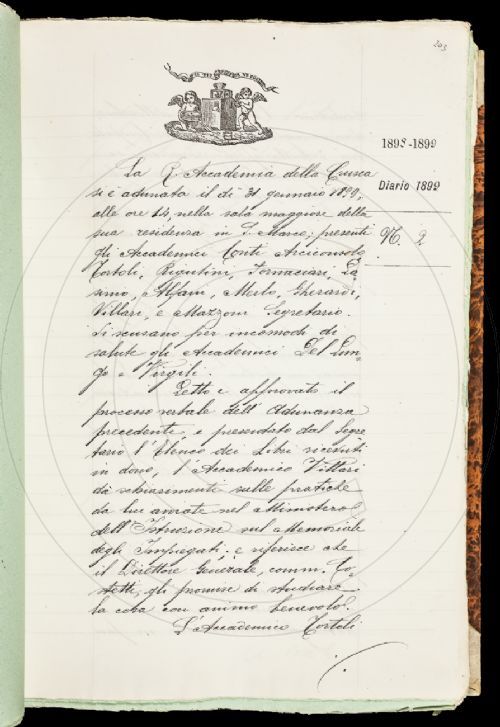 203
1898-1899
Diario 1899
N. 2
La R. Accademia della Crusca
si è adunata il dì 31 gennaio 1899,
alle ore 14, nella sala maggiore della
sua residenza in S. Marco; presenti
gli Accademici Conti Arciconsolo,
Tortoli, Rigutini, Fornaciari, Da-
smo, Alfani, Merlo, Gherardi,
Villari, e Mazzoni Segretario.
Si scusano per incomodi di
salute gli Accademici Del Lun-
go e Virgili.
Letto e approvato il
processo verbale dell'Adunanza
precedente, e presentato dal Segre
tario l'Elenco dei Libri ricevuti
in dono, l'Accademico Villari
dà schiarimenti sulle pratiche
da lui avviate nel Ministero
dell'Istruzione sul Memoriale
degli Impiegati; e riferisce che
il Direttore Generale, comm. Co-
stetti, gli promise di studiare
la cosa con animo benevolo.
L'Accademico Tortoli